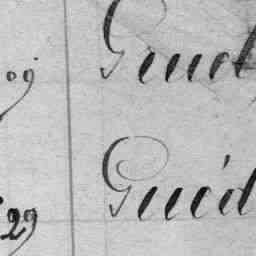 09 Guet
29 Guéd